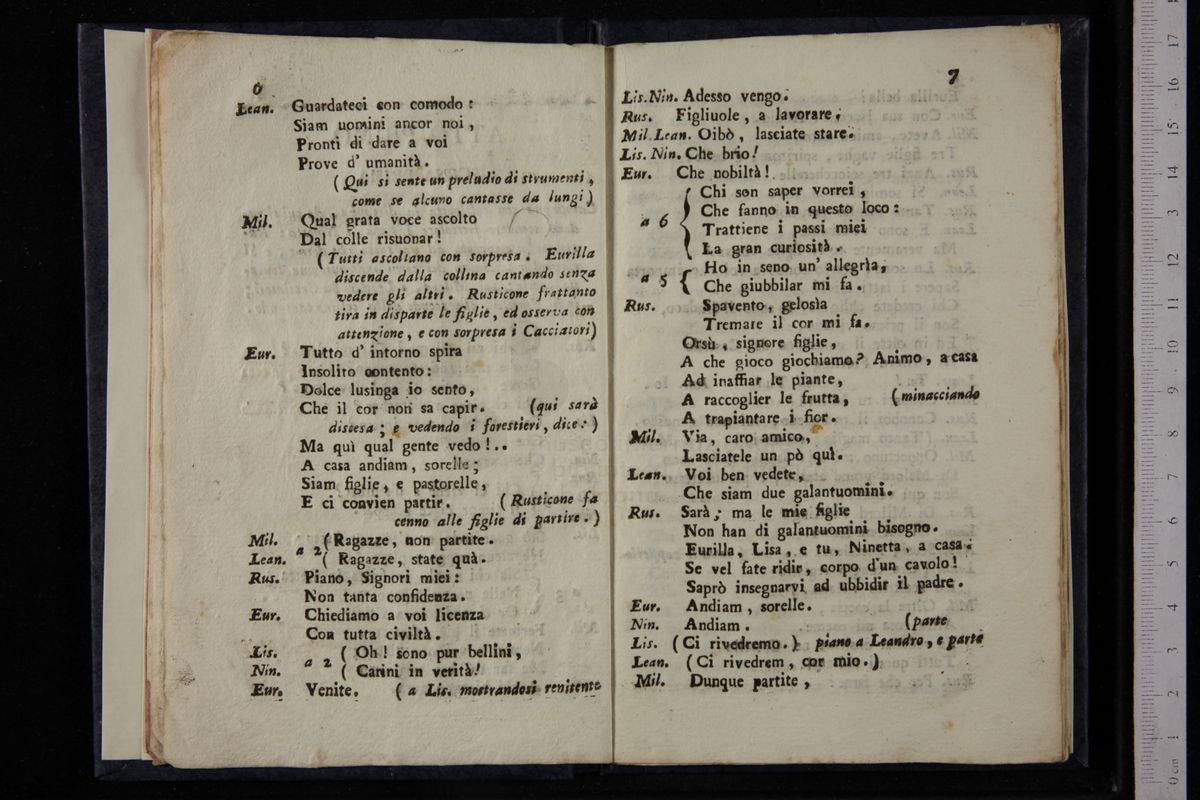 6
Lean. Guardateci con comodo :
Siam uomini ancor noi ,
Pronti di dare a voi
Prove d' umanità .
( Qui si sente un preludio di strumenti ,
come se alcuno cantasse da lungi )
Mil. Qual grata voce ascolto
Dal colle risuonar !
( Tutti ascoltano con sorpresa . Eurilla
discende dalla collina cantando senza
vedere gli altri . Rusticone frattanto
tira in disparte le figlie , ed osserva con
attenzione , e con sorpresa i Cacciatori )
Eur. Tutto d' intorno spira
Insolito contento :
Dolce lusinga io sento ,
Che il cor non sa capir . (qui sarà
discesa ; e vedendo i forestieri , dice : )
Ma quì qual gente vedo ! ..
A casa andiam , sorelle ;
Siam figlie , e pastorelle ,
E ci convien partir . ( Rusticone fa
cenno alle figlie di partire . )
Mil. a 2 ( Ragazze , non partite .
Lean. ( Ragazze , state quà .
Rus. Piano , Signori miei :
Non tanta confidenza .
Eur. Chiediamo a voi licenza
Con tutta civiltà .
Lis. a 2 ( Oh ! sono pur bellini ,
Nin. ( Carini in verità !
Eur. Venite . ( a Lis. mostrandosi renitente
7
Lis. Nin. Adesso vengo .
Rus. Figliuole , a lavorare .
Mil. Lean. Oibò , lasciate stare .
Lis. Nin. Che brio !
Eur. Che nobiltà !
a 6 { Chi son saper vorrei ,
Che fanno in questo loco :
Trattiene i passi miei
La gran curiosità .
a 5 { Ho in seno un' allegrìa ,
Che giubbilar mi fa .
Rus. Spavento , gelosìa
Tremare il cor mi fa .
Orsù , signore figlie ,
A che gioco giochiamo ? Animo , a casa
Ad inaffiar le piante ,
A raccoglier le frutta , ( minacciando
A trapiantare i fior .
Mil. Via , caro amico ,
Lasciatele un pò quì .
Lean. Voi ben vedete ,
Che siam due galantuomini .
Rus. Sarà ; ma le mie figlie
Non han di galantuomini bisogno .
Eurilla , Lisa , e tu , Ninetta , a casa :
Se vel fate ridir , corpo d'un cavolo !
Saprò insegnarvi ad ubbidir il padre .
Eur. Andiam , sorelle .
Nin. Andiam . (parte
Lis. ( Ci rivedremo . ) piano a Leandro , e parte
Lean. ( Ci rivedrem , cor mio . )
Mil. Dunque partite ,